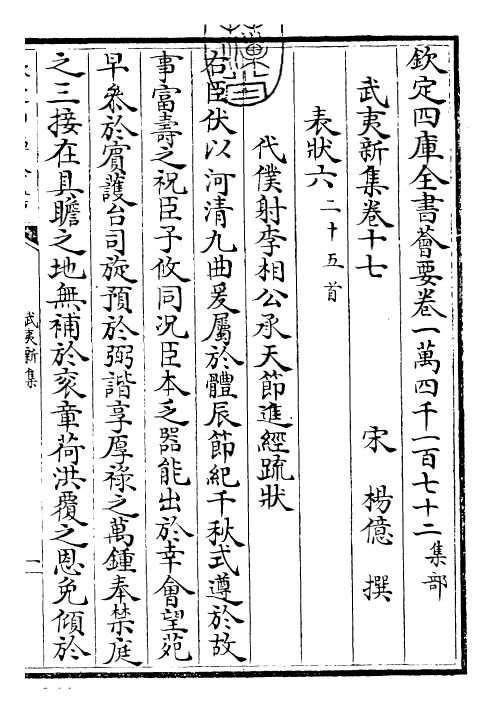 欽定四庫全書薈要卷一萬四千一百七十二集部
武夷新集卷十七
宋 楊億 撰
表狀六二十五首
代僕射李相公承天節進經疏狀
右臣伏以河清九曲爰屬於體辰節紀千秋式遵於故
事富壽之祝臣子攸同況臣本乏器能出於幸會望苑
早叅於賓護台司旋預於弼諧享厚祿之萬鍾奉禁庭
之三接在具瞻之地無補於袞章荷洪覆之恩免傾於
武夷新集
一